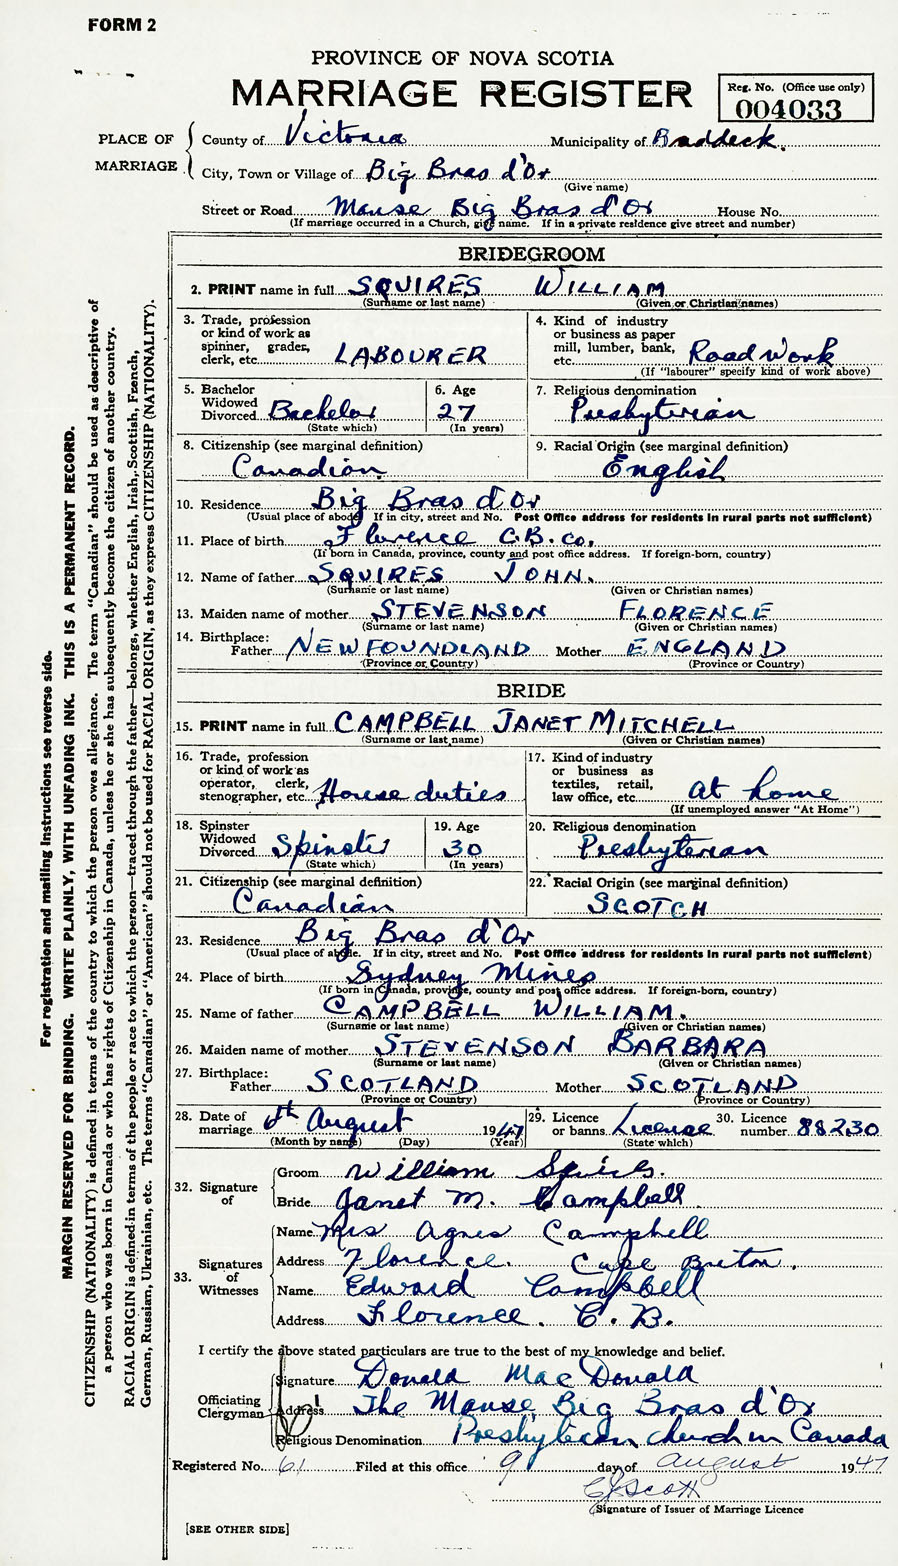 FORM 2
PROVINCE OF NOVA SCOTIA
MARRIAGE REGISTER
Reg. No. (Office use only)
004033
PLACE OF MARRIAGE
County of Victoria Municipality of Baddeck.
City, Town or Village of Big Bras d'Or
(Give name)
Street or Road Manse Big Bras d'Or House No.
(If marriage occurred in a Church, give name. If in a private residence give street and number)
BRIDEGROOM
2. PRINT name in full SQUIRES WILLIAM
(Surname or last name) (Given or Christian names)
3. Trade, profession
or kind of work as
spinner, grader,
clerk, etc. LABOURER
4. Kind of industry
or business as paper
mill, lumber, bank,
etc. Road work
(If "labourer" specify kind of work above)
5. Bachelor
Widowed
Divorced Bachelor
(State which)
6. Age
27
(In years)
7. Religious denomination
Presbyterian
8. Citizenship (see marginal definition)
Canadian
9. Racial Origin (see marginal definition)
English
10. Residence Big Bras d'Or
(Usual place of abode. If in city, street and No. Post Office address for residents in rural parts not sufficient)
11. Place of birth Florence C.B. Co.
(If born in Canada, province, county and post office address. If foreign-born, country)
12. Name of father SQUIRES JOHN.
(Surname or last name) (Given or Christian names)
13. Maiden name of mother STEVENSON FLORENCE
(Surname or last name) (Given or Christian names)
14. Birthplace:
Father NEWFOUNDLAND Mother ENGLAND
(Province or Country) (Province or Country)
BRIDE
15. PRINT name in full CAMPBELL JANET MITCHELL
(Surname or last name) (Given or Christian names)
16. Trade, profession
or kind of work as
operator, clerk,
stenographer, etc. House duties
17. Kind of industry
or business as
textiles, retail,
law office, etc. at home
(If unemployed answer "At Home")
18. Spinster
Widowed
Divorced Spinster
(State which)
19. Age
30
(In years)
20. Religious denomination
Presbyterian
21. Citizenship (see marginal definition)
Canadian
22. Racial Origin (see marginal definition)
SCOTCH
23. Residence Big Bras d'Or
(Usual place of abode. If in city, street and No. Post Office address for residents in rural parts not sufficient)
24. Place of birth Sydney Mines
(If born in Canada, province, county and post office address. If foreign-born, country)
25. Name of father CAMPBELL WILLIAM.
(Surname or last name) (Given or Christian names)
26. Maiden name of mother STEVENSON BARBARA
(Surname or last name) (Given or Christian names)
27. Birthplace:
Father SCOTLAND Mother SCOTLAND
(Province or Country) (Province or Country)
28. Date of
marriage 6th August 1947
(Month by name) (Day) (Year)
29. Licence
or banns License
(State which)
30. Licence
number 88230
32. Signature of
Groom William Squires.
Bride Janet M. Campbell
33. Signatures of Witnesses
Name Mrs Agnes Campbell
Address Florence. Cape Breton.
Name Edward Campbell
Address Florence. C. B.
I certify the above stated particulars are true to the best of my knowledge and belief.
Officiating Clergyman
Signature Donald MacDonald
Address The Manse, Big Bras d'Or
Religious Denomination Presbyterian church in Canada
Registered No. 61 Filed at this office 9 day of August 1947
Scott
Signature of Issuer of Marriage Licence
[SEE OTHER SIDE]
For registration and mailing instructions see reverse side.
MARGIN RESERVED FOR BINDING. WRITE PLAINLY, WITH UNFADING INK. THIS IS A PERMANENT RECORD.
CITIZENSHIP (NATIONALITY) is defined in terms of the country to which the person owes allegiance. The term "Canadian" should be used as descriptive of
a person who was born in Canada or who has rights of Citizenship in Canada, unless he or she has subsequently become the citizen of another country.
RACIAL ORIGIN is defined in terms of the people or race to which the person—traced through the father—belongs, whether English, Irish, Scottish, French,
German, Russian, Ukrainian, etc. The terms "Canadian" or "American" should not be used for RACIAL ORIGIN, as they express CITIZENSHIP (NATIONALITY).